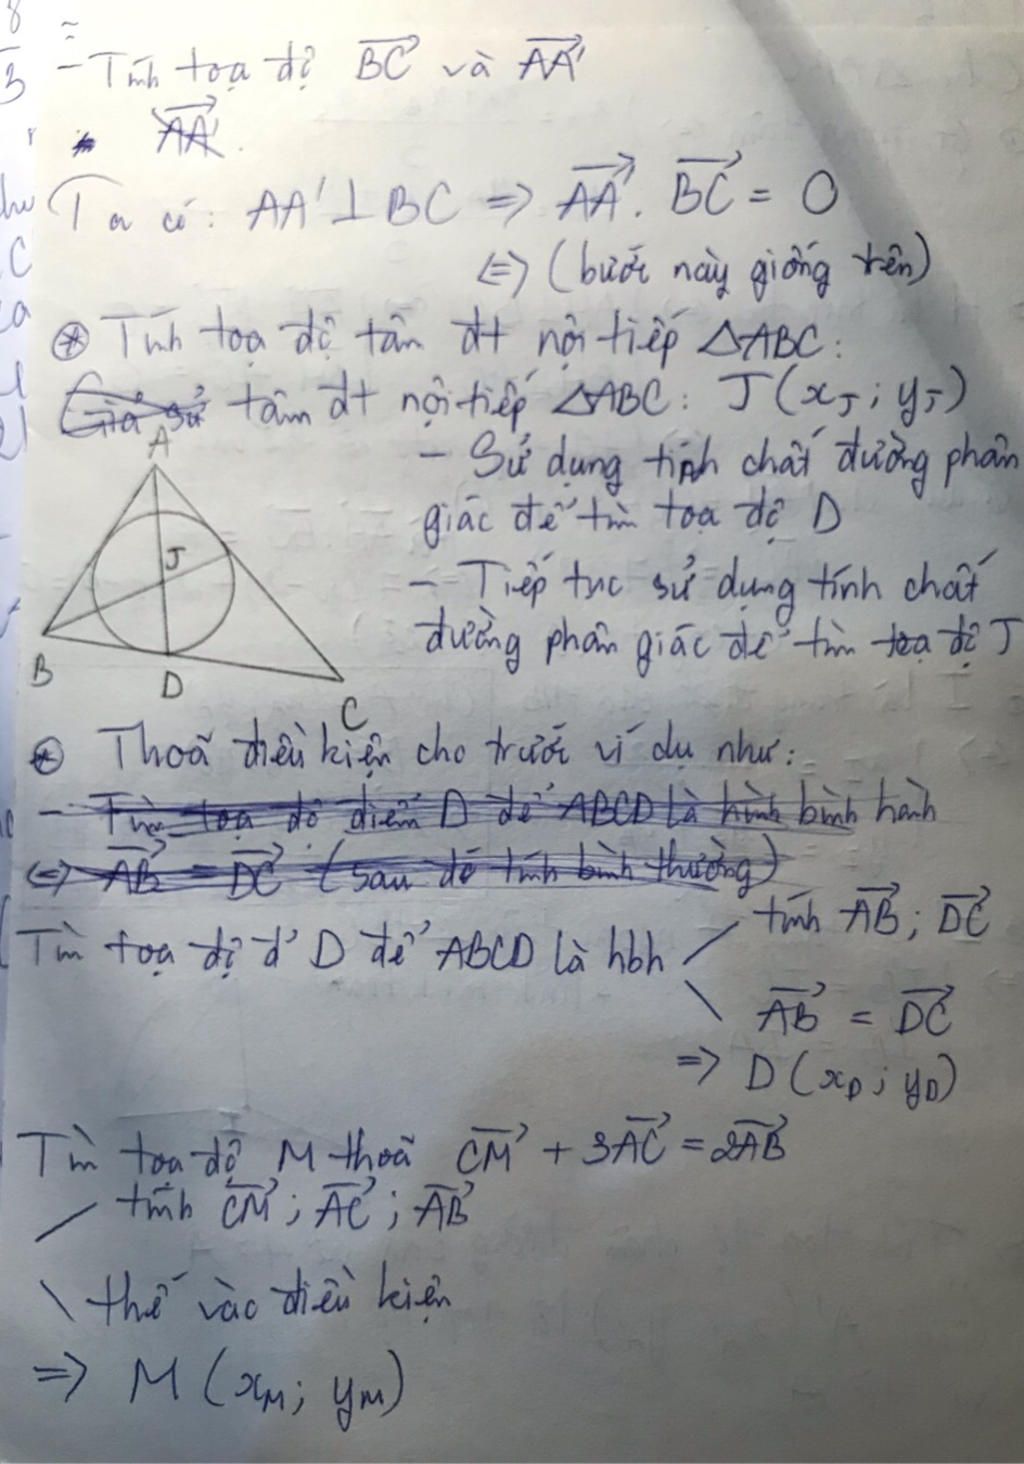 - Tính toạ độ BC và AA'
AA'.
Ta có: AA' ⊥ BC => AA'. BC = 0
<=> (bước này giống trên)
⊛ Tính toạ độ tâm đt nội tiếp △ABC:
Giả sử tâm đt nội tiếp △ABC: J(x_J; y_J)
A
- Sử dụng tính chất đường phân
giác để tìm toạ độ D
J
- Tiếp tục sử dụng tính chất
đường phân giác để tìm toạ độ J
B
D
C
⊛ Thoã điều kiện cho trước ví dụ như:
- Tìm toạ độ điểm D để ABCD là hình bình hành
<=> AB = DC (sau đó tính bình thường)
tính AB; DC
Tìm toạ độ đ' D để ABCD là hbh
AB = DC
=> D(x_D; y_D)
Tìm toạ độ M thoã CM + 3AC = 2AB
tính CM; AC; AB
thế vào điều kiện
=> M(x_M; y_M)